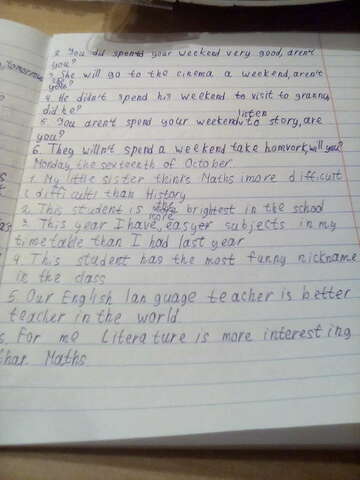 2. You did spents your weekend very good, aren't
you?
3. She will go to the cinema a weekend, aren't
she?
4. He didn't spend his weekend to visit to granny,
did he?
listen
5. You aren't spend your weekend, to story, are
you?
6. They willn't spend a weekend take homvork, will you?
Monday, the sexteenth of October.
1. My little sister thinks Maths is more difficult
(difficult) than History
2. This student is the brightest in the school
more
3. This year I have, easyer subjects in my
timetable than I had last year
4. This student has the most funny nickname
in the class
5. Our English language teacher is better
teacher in the world
6. For me Literature is more interesting
than Maths